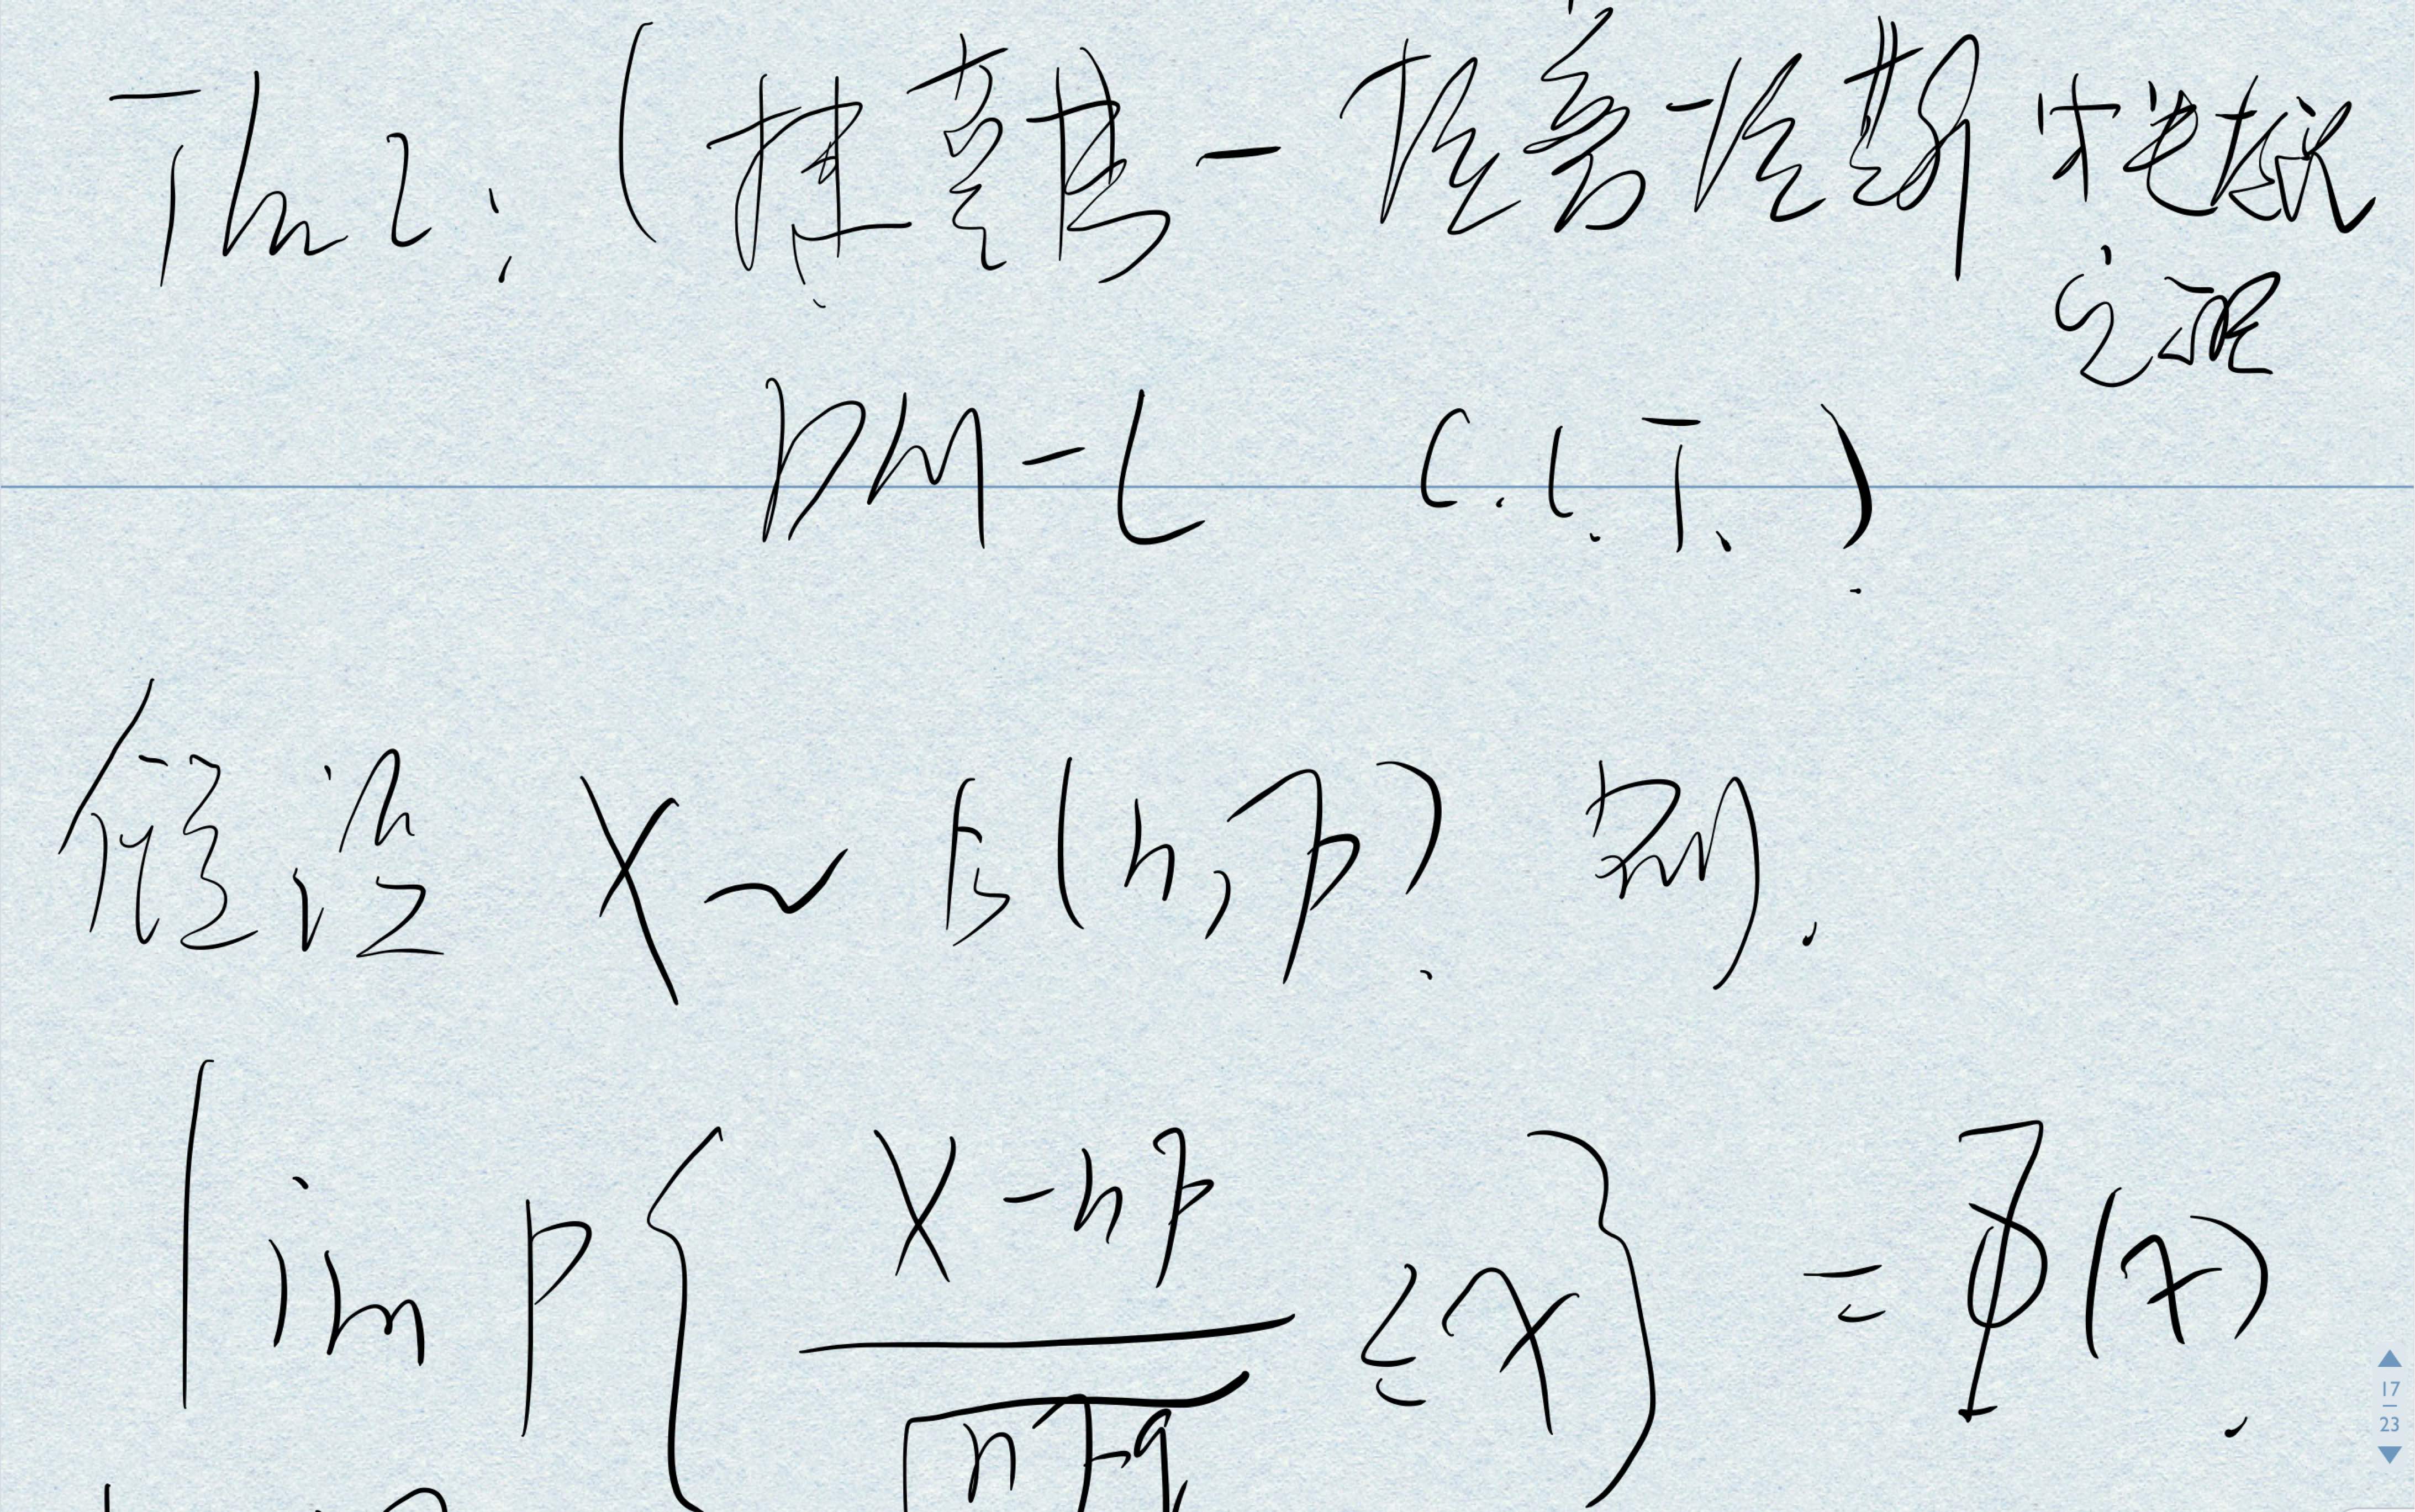 Thm 2: (棣莫弗-拉普拉斯中心极限
定理
DM-L C.L.T.)
假设 X~B(n,p) 则.
lim P{ (X-np)/√npq ≤ x } = Φ(x).
17
23